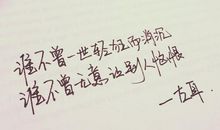 谁不曾一世轻狂而消沉
谁不曾无意让别人怕恨
一古耳.